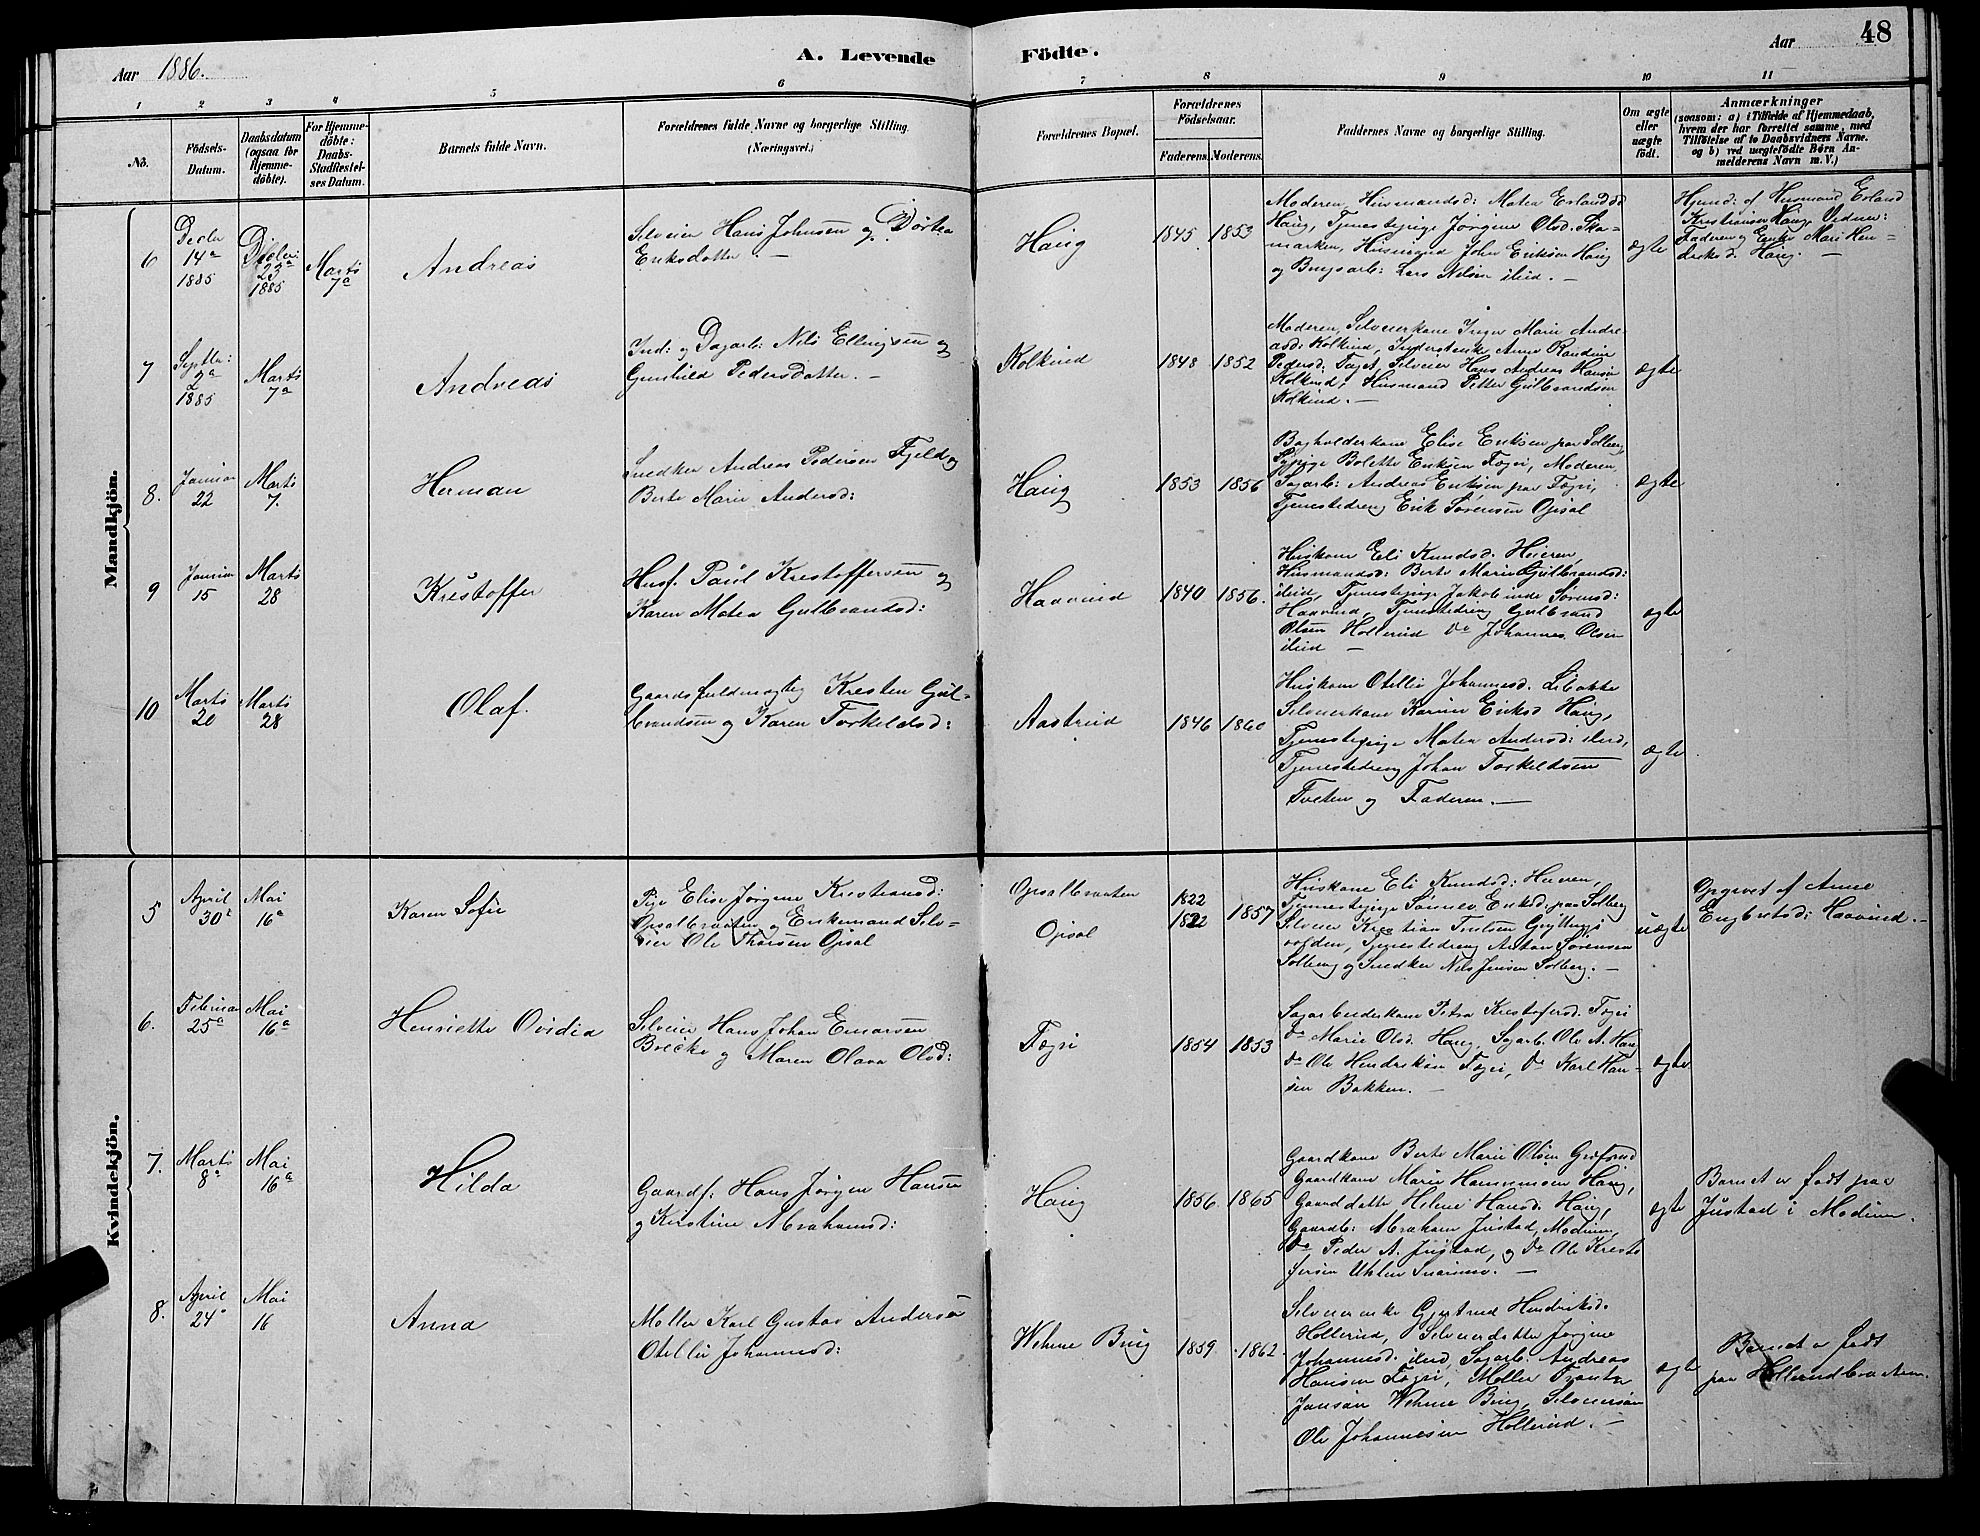 Aar 1886.
A. Levende Födte.
Aar
48
1 2 3 4 5 6 7 8 9 10 11
No.
Födsels-
Datum.
Daabsdatum
(ogsaa for
Hjemme-
döbte).
For Hjemme-
döbte:
Daabs-
Stadfæstel-
ses Datum.
Barnets fulde Navn.
Forældrenes fulde Navne og borgerlige Stilling.
(Næringsvei.)
Forældrenes Bopæl.
Forældrenes
Födselsaar.
Faderens. Moderens.
Faddernes Navne og borgerlige Stilling.
Om ægte
eller
uægte
födt.
Anmærkninger
(saasom: a) i Tilfælde af Hjemmedaab,
hvem der har forrettet samme, med
Tilföielse af to Daabsvidners Navne.
og b) ved uægtefödte Börn An-
melderens Navn m. V.)
Mandkjön.
6
Decbr
14a
1885
Decbr
23a
1885
Marts
7a
Andreas
Selveier Hans Johnsen og Dortea
Eriksdatter. —
Haug
1845. 1853
Moderen, Husmandsd: Matea Erlandsd
Haug, Tjenestepige Jørgine Olsd. Ska-
marken, Husmand John Eriksen Haug
og Brugsarb: Lars Nilsen ibid. —
ægte
Hjemd: af Husmand Erland
Kristiansen Haug. Vidner:
Faderen og Enke Mari Hen-
driksd. Haug. —
7
Septbr:
2a
1885
Marts
7a
Andreas
Ind: og Dagarb: Nils Ellingsen og
Gunhild Pedersdatter. —
Kolkind
1848 1852
Moderen, Selveierkone Inger Marie Andre-
asd: Kolkind, Inderstenke Anne Randine
Pedersd. Faget, Selveier Hans Andreas Hansen
Kolkind, Husmand Petter Gulbrandsen
Kolkind. —
ægte
8.
Januar
22
Marts
7.
Herman
Snedker Andreas Pedersen Fjeld og
Berte Marie Andersd:
Haug
1853 1856
Elise Eriksen paa Solberg,
Sypige Bolette Eriksen Fægri, Moderen,
Sagarb: Andreas Eriksen paa Fægri,
Tjenestedreng Erik Sørensen Opsal
ægte
9
Januar
15
Marts
28
Kristoffer
Husf. Paul Kristoffersen og
Karen Matea Gulbrandsd:
Haavind
1840 1856.
Huskone Eli Knudsd: Heieren,
Husmandsd: Berte Marie Gulbrandsd:
ibid, Tjenestepige Jakobine Sørensd:
Haavind, Tjenestedreng Gulbrand
Olsen Hollerud Do Johannes Olsen
ibid —
ægte
10
Marts
20
Marts
28
Olaf.
Gaardsfuldmægtig Kresten Gul-
brandsen og Karen Torkeldsd:
Aastrud
1846 1860
Huskone Otellie Johannesd.
Selveierkone Karine Eriksd Haug,
Tjenestepige Matea Andersd: ibid,
Tjenestedreng Johan Torkeldsen
Tveten og Faderen. —
ægte
Kvindekjön.
5
April
30a
Mai
16a
Karen Sofie
Pige Elise Jørgine Kristiansd:
Opsalbraaten og Enkemand Selv-
eier Ole Thorsen Opsal
Opsalbraaten
Opsal
1822
1822 1857
Huskone Eli Knudsd: Heieren,
Tjenestepige Sønnev Eriksd: paa Solberg
Selveier Kristian Truelsen
Tjenestedreng Anton Sørensen
Solberg og Snedker Nils Jensen Solberg. —
uægte
Opgivet af Anne
Engbretsd: Haavind. —
6.
Februar
25a
Mai
16a
Henriette Ovidia
Selveier Hans Johan Einarsen
Brecke og Maren Olava Olsd:
Fægri
1854 1853
Sagarbeiderkone Petra Kristofersd. Fægri
Do Marie Olsd. Haug, Sagarb. Ole A. Haug
Do Ole Hendriksen Fægri, Do Karl Han-
sen Bakken. —
ægte
7.
Marts
8a
Mai
16a
Hilda
Gaardf. Hans Jørgen Hansen
og Kirstine Abrahamsd:
Haug
1856. 1865
Gaardkone Berte Marie Olsen
Gaardkone Marie Hansen Haug,
Gaarddatter Helene Hansd. Haug,
Gaardb: Abraham Justad, Modum,
Do Peder A. Justad, og Do Ole Kristo-
fersen
ægte
Barnet er født paa
Justad i Modum.
8.
April
24a
Mai
16
Anna
Møller Karl Gustav Andersen
Otellie Johannesd:
Wehme Brug
1859. 1862.
Selveierenke Gjertrud Hendriksd.
Hollerud, Selveierdatter Jørgine
Johannesd. ibid, Sagarb. Andreas
Hansen Fægri, Møller Frants
Jansen Wehme Brug, Selveiersøn
Ole Johannesen Hollerud. —
ægte
Barnet er født
paa Hollerudbraaten.